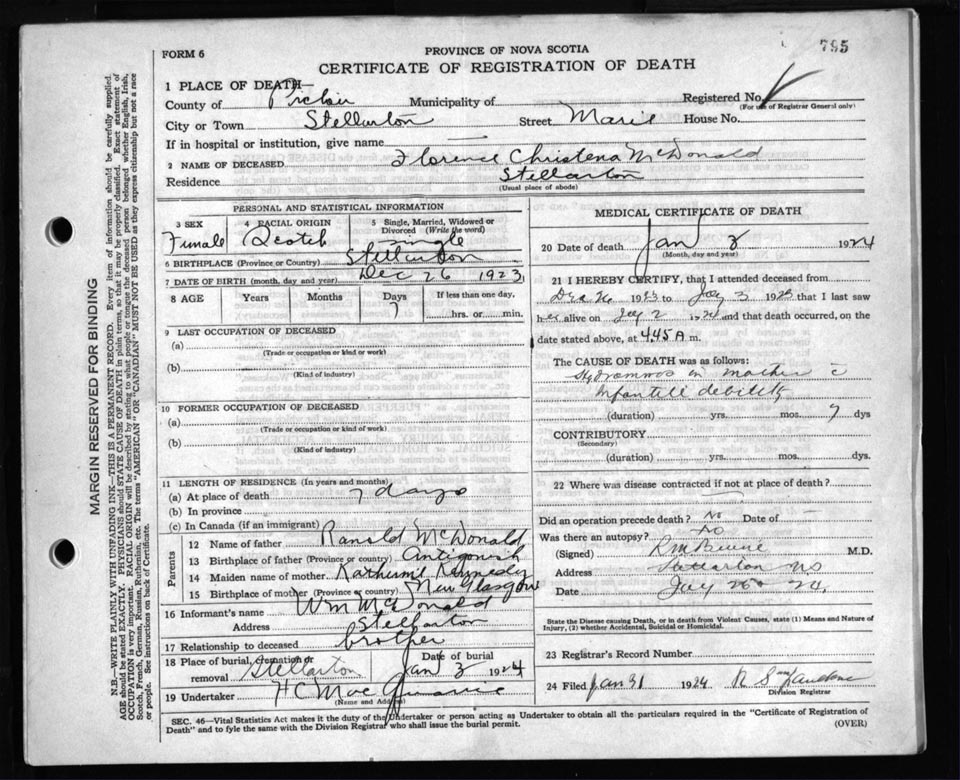 795
FORM 6
PROVINCE OF NOVA SCOTIA
CERTIFICATE OF REGISTRATION OF DEATH
1 PLACE OF DEATH—
County of Pictou Municipality of Registered No.
(For use of Registrar General only)
City or Town Stellarton Street Marie House No.
If in hospital or institution, give name —
2 NAME OF DECEASED Florence Christena McDonald
Residence Stellarton
(Usual place of abode)
PERSONAL AND STATISTICAL INFORMATION
3 SEX Female
4 RACIAL ORIGIN Scotch
5 Single, Married, Widowed or Divorced (Write the word) single
6 BIRTHPLACE (Province or Country) Stellarton
7 DATE OF BIRTH (month, day and year) Dec 26 1923
8 AGE Years Months Days 7 If less than one day, hrs. or min.
9 LAST OCCUPATION OF DECEASED
(a)
(Trade or occupation or kind or work)
(b)
(Kind of industry)
10 FORMER OCCUPATION OF DECEASED
(a)
(Trade or occupation or kind of work)
(b)
(Kind of industry)
11 LENGTH OF RESIDENCE (In years and months)
(a) At place of death 7 days
(b) In province
(c) In Canada (if an immigrant)
Parents
12 Name of father Ranald McDonald
13 Birthplace of father (Province or country) Antigonish
14 Maiden name of mother Kennedy
15 Birthplace of mother (Province or country) New Glasgow
16 Informant's name Wm McDonald
Address Stellarton
17 Relationship to deceased brother
18 Place of burial, cremation or removal Stellarton Date of burial Jan 3 1924
19 Undertaker H C Mac
(Name and Address)
MEDICAL CERTIFICATE OF DEATH
20 Date of death Jan 1924
(Month, day and year)
21 I HEREBY CERTIFY, that I attended deceased from
Dec 26 1923 to 3 1923 that I last saw
her alive on 2 and that death occurred, on
date stated above, at 4.45 A m.
The CAUSE OF DEATH was as follows:
in mother c
Infantile debility
(duration) yrs. mos. 7 dys
CONTRIBUTORY
(Secondary)
(duration) yrs. mos. dys.
22 Where was disease contracted if not at place of death?
—
Did an operation precede death? No Date of —
Was there an autopsy? No
(Signed) M.D.
Address Stellarton NS
Date 24
State the Disease causing Death, or in death from Violent Causes, state (1) Means and Nature of Injury, (2) whether Accidental, Suicidal or Homicidal.
23 Registrar's Record Number
24 Filed Jan 31 1924 R S
Division Registrar
SEC. 46—Vital Statistics Act makes it the duty of the Undertaker or person acting as Undertaker to obtain all the particulars required in the "Certificate of Registration of
Death" and to fyle the same with the Division Registrar who shall issue the burial permit. (OVER)
MARGIN RESERVED FOR BINDING
N.B.—WRITE PLAINLY WITH UNFADING INK—THIS IS A PERMANENT RECORD. Every item of information should be carefully supplied.
AGE should be stated EXACTLY. PHYSICIANS should STATE CAUSE OF DEATH in plain terms, so that it may be properly classified. Exact statement of
OCCUPATION is very important. RACIAL ORIGIN will be described by stating to what people or tongue the deceased person belonged whether English, Irish,
Scotch, French, German, Russian, Ruthenian, etc. The terms "AMERICAN" OR "CANADIAN" MUST NOT BE USED as they express citizenship but not a race
or people. See instructions on back of Certificate.